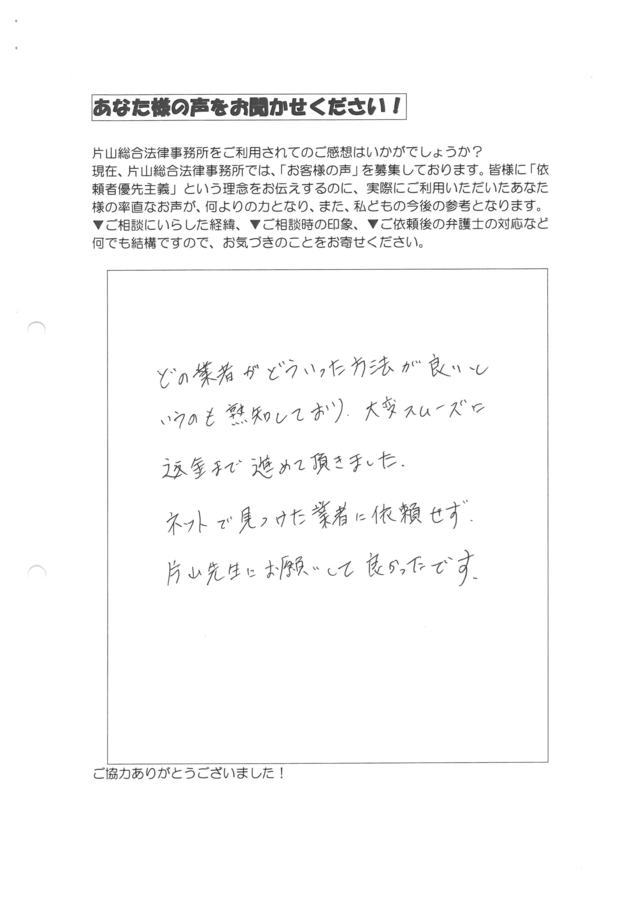 あなた様の声をお聞かせください！
片山総合法律事務所をご利用されてのご感想はいかがでしょうか？
現在、片山総合法律事務所では、「お客様の声」を募集しております。皆様に「依
頼者優先主義」という理念をお伝えするのに、実際にご利用いただいたあなた
様の率直なお声が、何よりの力となり、また、私どもの今後の参考となります。
▼ご相談にいらした経緯、▼ご相談時の印象、▼ご依頼後の弁護士の対応など
何でも結構ですので、お気づきのことをお寄せください。
どの業者がどういった方法が良いと
いうのも熟知しており、大変スムーズに
返金まで進めて頂きました。
ネットで見つけた業者に依頼せず、
片山先生にお願いして良かったです。
ご協力ありがとうございました！